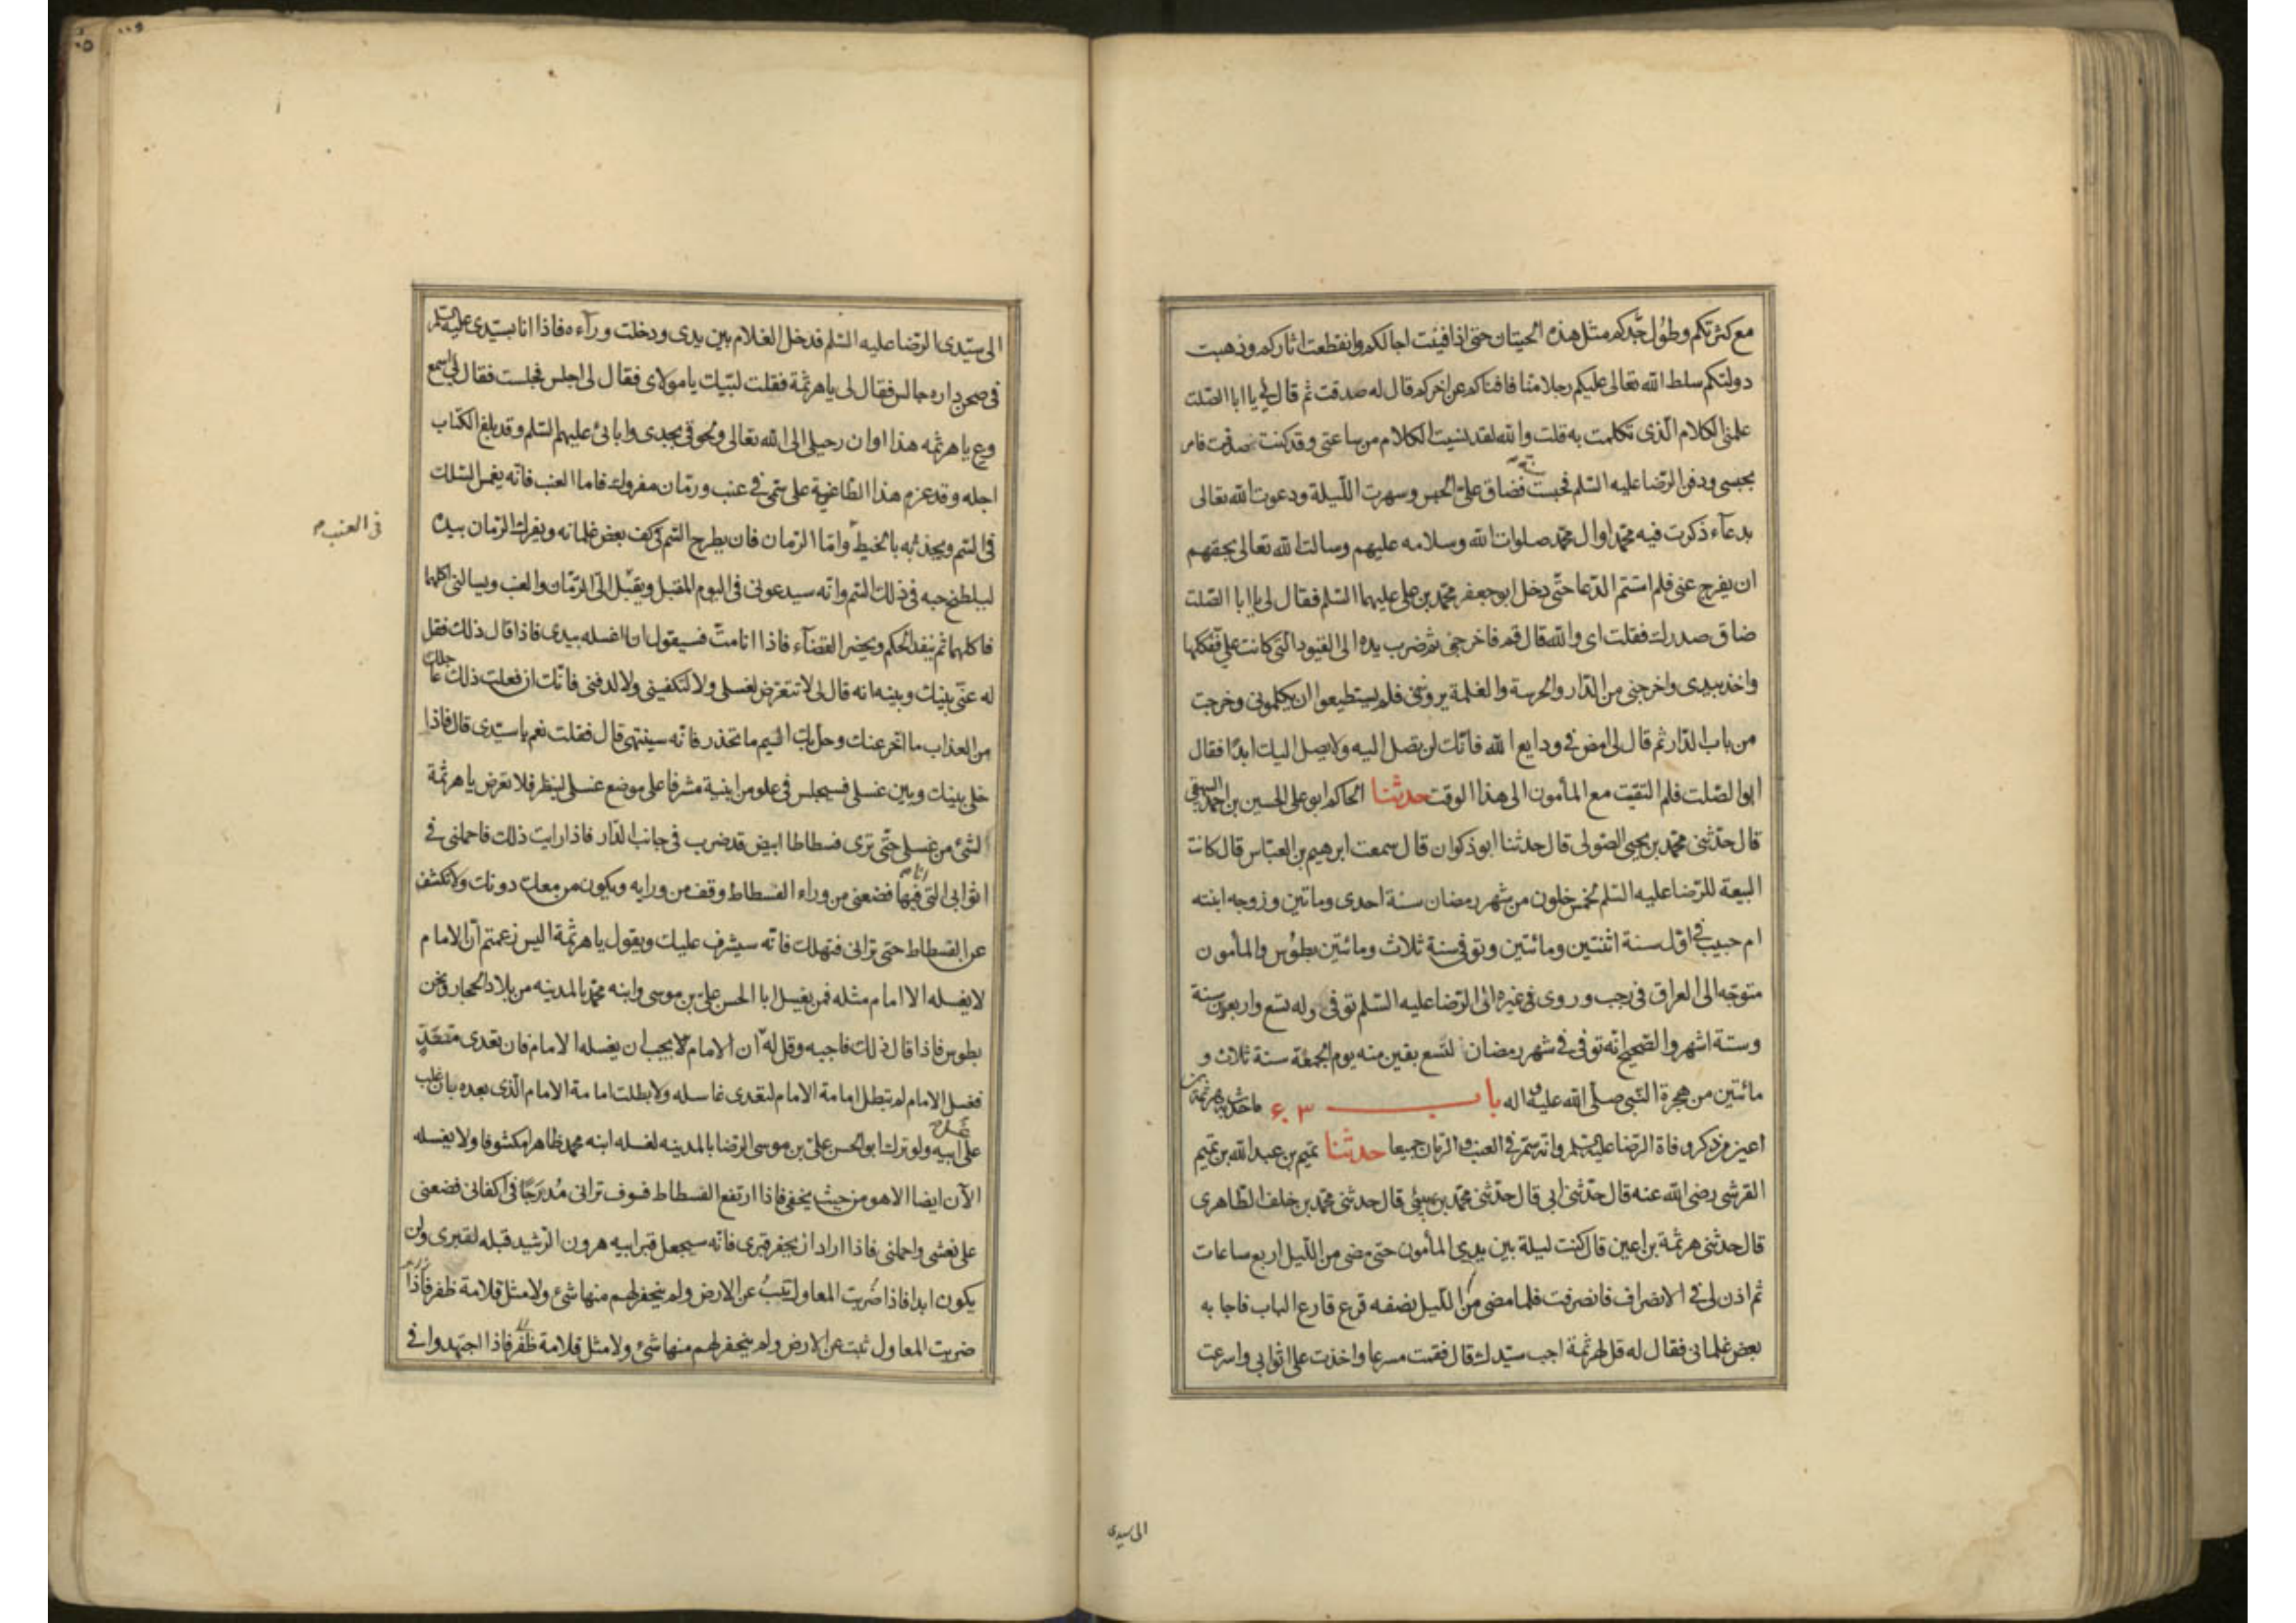 مع كثرتكم وطول حدكم مثل هذه الحيتان حتى اذا فنيت اجالكم وانقطعت اثاركم وذهبت
دولتكم سلط الله تعالى عليكم رجلا منا فافناكم عن اخركم قال له صدقت ثم قال لي يا ابا الصلت
علمنى الكلام الذى تكلمت به قلت والله لقد نسيت الكلام من ساعتى وقد كنت صدقت فامر
بحبسى ودفن الرضا عليه السلم فحبست سنة فضاق على الحبس وسهرت الليلة ودعوت الله تعالى
بدعاء ذكرت فيه محمدا وال محمد صلوات الله وسلامه عليهم وسالت الله تعالى بحقهم
ان يفرج عنى فلم استتم الدعا حتى دخل ابو جعفر محمد بن على عليهما السلم فقال لى يا ابا الصلت
ضاق صدرك فقلت اى والله قال قم فاخرجنى ثم ضرب يده الى القيود التى كانت على ففكها
واخذ بيدى واخرجنى من الدار والحرسة والغلمة يرونى فلم يستطيعوا ان يكلمونى وخرجت
من باب الدار ثم قال لى امض فى ودايع الله فانك لن تصل اليه ولا يصل اليك ابدا فقال
ابو الصلت فلم التقيت مع المأمون الى هذا الوقت حدثنا الحاكم ابو على الحسين بن احمد البيهقى
قال حدثنى محمد بن يحيى الصولى قال حدثنا ابو ذكوان قال سمعت ابرهيم بن العباس قال كانت
البيعة للرضا عليه السلم لخمس خلون من شهر رمضان سنة احدى وماتين وزوجه ابنته
ام حبيب فى اول سنة اثنتين ومائتين وتوفى سنة ثلاث ومائتين بطوس والمأمون
متوجه الى العراق فى رجب وروى لى غيره ان الرضا عليه السلم توفى وله تسع واربعون سنة
وستة اشهر والصحيح انه توفى فى شهر رمضان لتسع بقين منه يوم الجمعة سنة ثلاث و
مائتين من هجرة النبى صلى الله عليه واله باب ٦٣ ما حدث به هرثمة بن
اعين من ذكر وفاة الرضا عليه السلم وانه سم فى العنب والرمان جميعا حدثنا تميم بن عبد الله بن تميم
القرشى رضى الله عنه قال حدثنى ابى قال حدثنى محمد بن يحيى قال حدثنى محمد بن خلف الطاهرى
قال حدثنى هرثمة بن اعين قال كنت ليلة بين يدى المأمون حتى مضى من الليل اربع ساعات
ثم اذن لى فى الانصراف فانصرفت فلما مضى من الليل نصفه قرع قارع الباب فاجابه
بعض غلمانى فقال له قل لهرثمة اجب سيدك قال فقمت مسرعا واخذت على اثوابى واسرعت
الى سيدى
الى سيدى الرضا عليه السلم فدخل الغلام بين يدى ودخلت وراءه فاذا انا بسيدى عليه السلم
فى صحن داره جالس فقال لى يا هرثمة فقلت لبيك يا مولاى فقال لى اجلس فجلست فقال لى اسمع
وع يا هرثمه هذا اوان رحيلى الى الله تعالى ولحوقى بجدى وابائى عليهم السلم وقد بلغ الكتاب
اجله وقد عزم هذا الطاغية على سمى فى عنب ورمان مفروك فاما العنب فانه يغمس السلك
فى السم ويجذبه بالخيط واما الرمان فان يطرح السم فى كف بعض غلمانه ويفرك الرمان بيده
فى العنب
ليلطخ حبه فى ذلك السم وانه سيدعونى فى اليوم المقبل ويقبل الى الرمان والعنب ويسالنى اكلهما
فاكلهما ثم ينفد الحكم ويحضر القضاء فاذا انا مت فسيقول انا اغسله بيدى فاذا قال ذلك فقل
له عنى بينك وبينه انه قال لى لا تتعرض لغسلى ولا لتكفينى ولا لدفنى فانك ان فعلت ذلك عاجلك
من العذاب ما اخر عنك وحل بك اليم ما تحذر فانه سينتهى قال فقلت نعم يا سيدى قال فاذا
خلى بينك وبين غسلى فسيجلس فى علو من ابنية مشرفا على موضع غسلى لينظر فلا تعرض يا هرثمة
لشئ من غسلى حتى ترى فسطاطا ابيض قد ضرب فى جانب الدار فاذا رايت ذلك فاحملنى فى
اثوابى التى انا فيها فضعنى من وراء الفسطاط وقف من ورايه ويكون من معك دونك ولا تكشف
عن الفسطاط حتى ترانى فتهلك فانه سيشرف عليك ويقول يا هرثمة اليس زعمتم ان الامام
لا يغسله الا امام مثله فمن يغسل ابا الحسن على بن موسى وابنه محمد بالمدينه من بلاد الحجاز ونحن
بطوس فاذا قال ذلك فاجبه وقل له ان الامام لا يجب ان يغسله الا امام فان تعدى متعد
فغسل الامام لم تبطل امامة الامام لتعدى غاسله ولا بطلت امامة الامام الذى بعده بان غلب
على غسل ابيه ولو ترك ابو الحسن على بن موسى الرضا بالمدينه لغسله ابنه محمد ظاهرا مكشوفا ولا يغسله
الآن ايضا الا هو من حيث يخفى فاذا ارتفع الفسطاط فسوف ترانى مدرجا فى اكفانى فضعنى
على نعشى واحملنى فاذا اراد ان يحفر قبرى فانه سيجعل قبر ابيه هرون الرشيد قبله لقبرى ولن
يكون ابدا فاذا ضربت المعاول تنب عن الارض ولم ينحفر لهم منها شئ ولا مثل قلامة ظفر فاذا
ضربت المعاول نبت عن الارض ولم ينحفر لهم منها شئ ولا مثل قلامة ظفر فاذا اجتهدوا فى